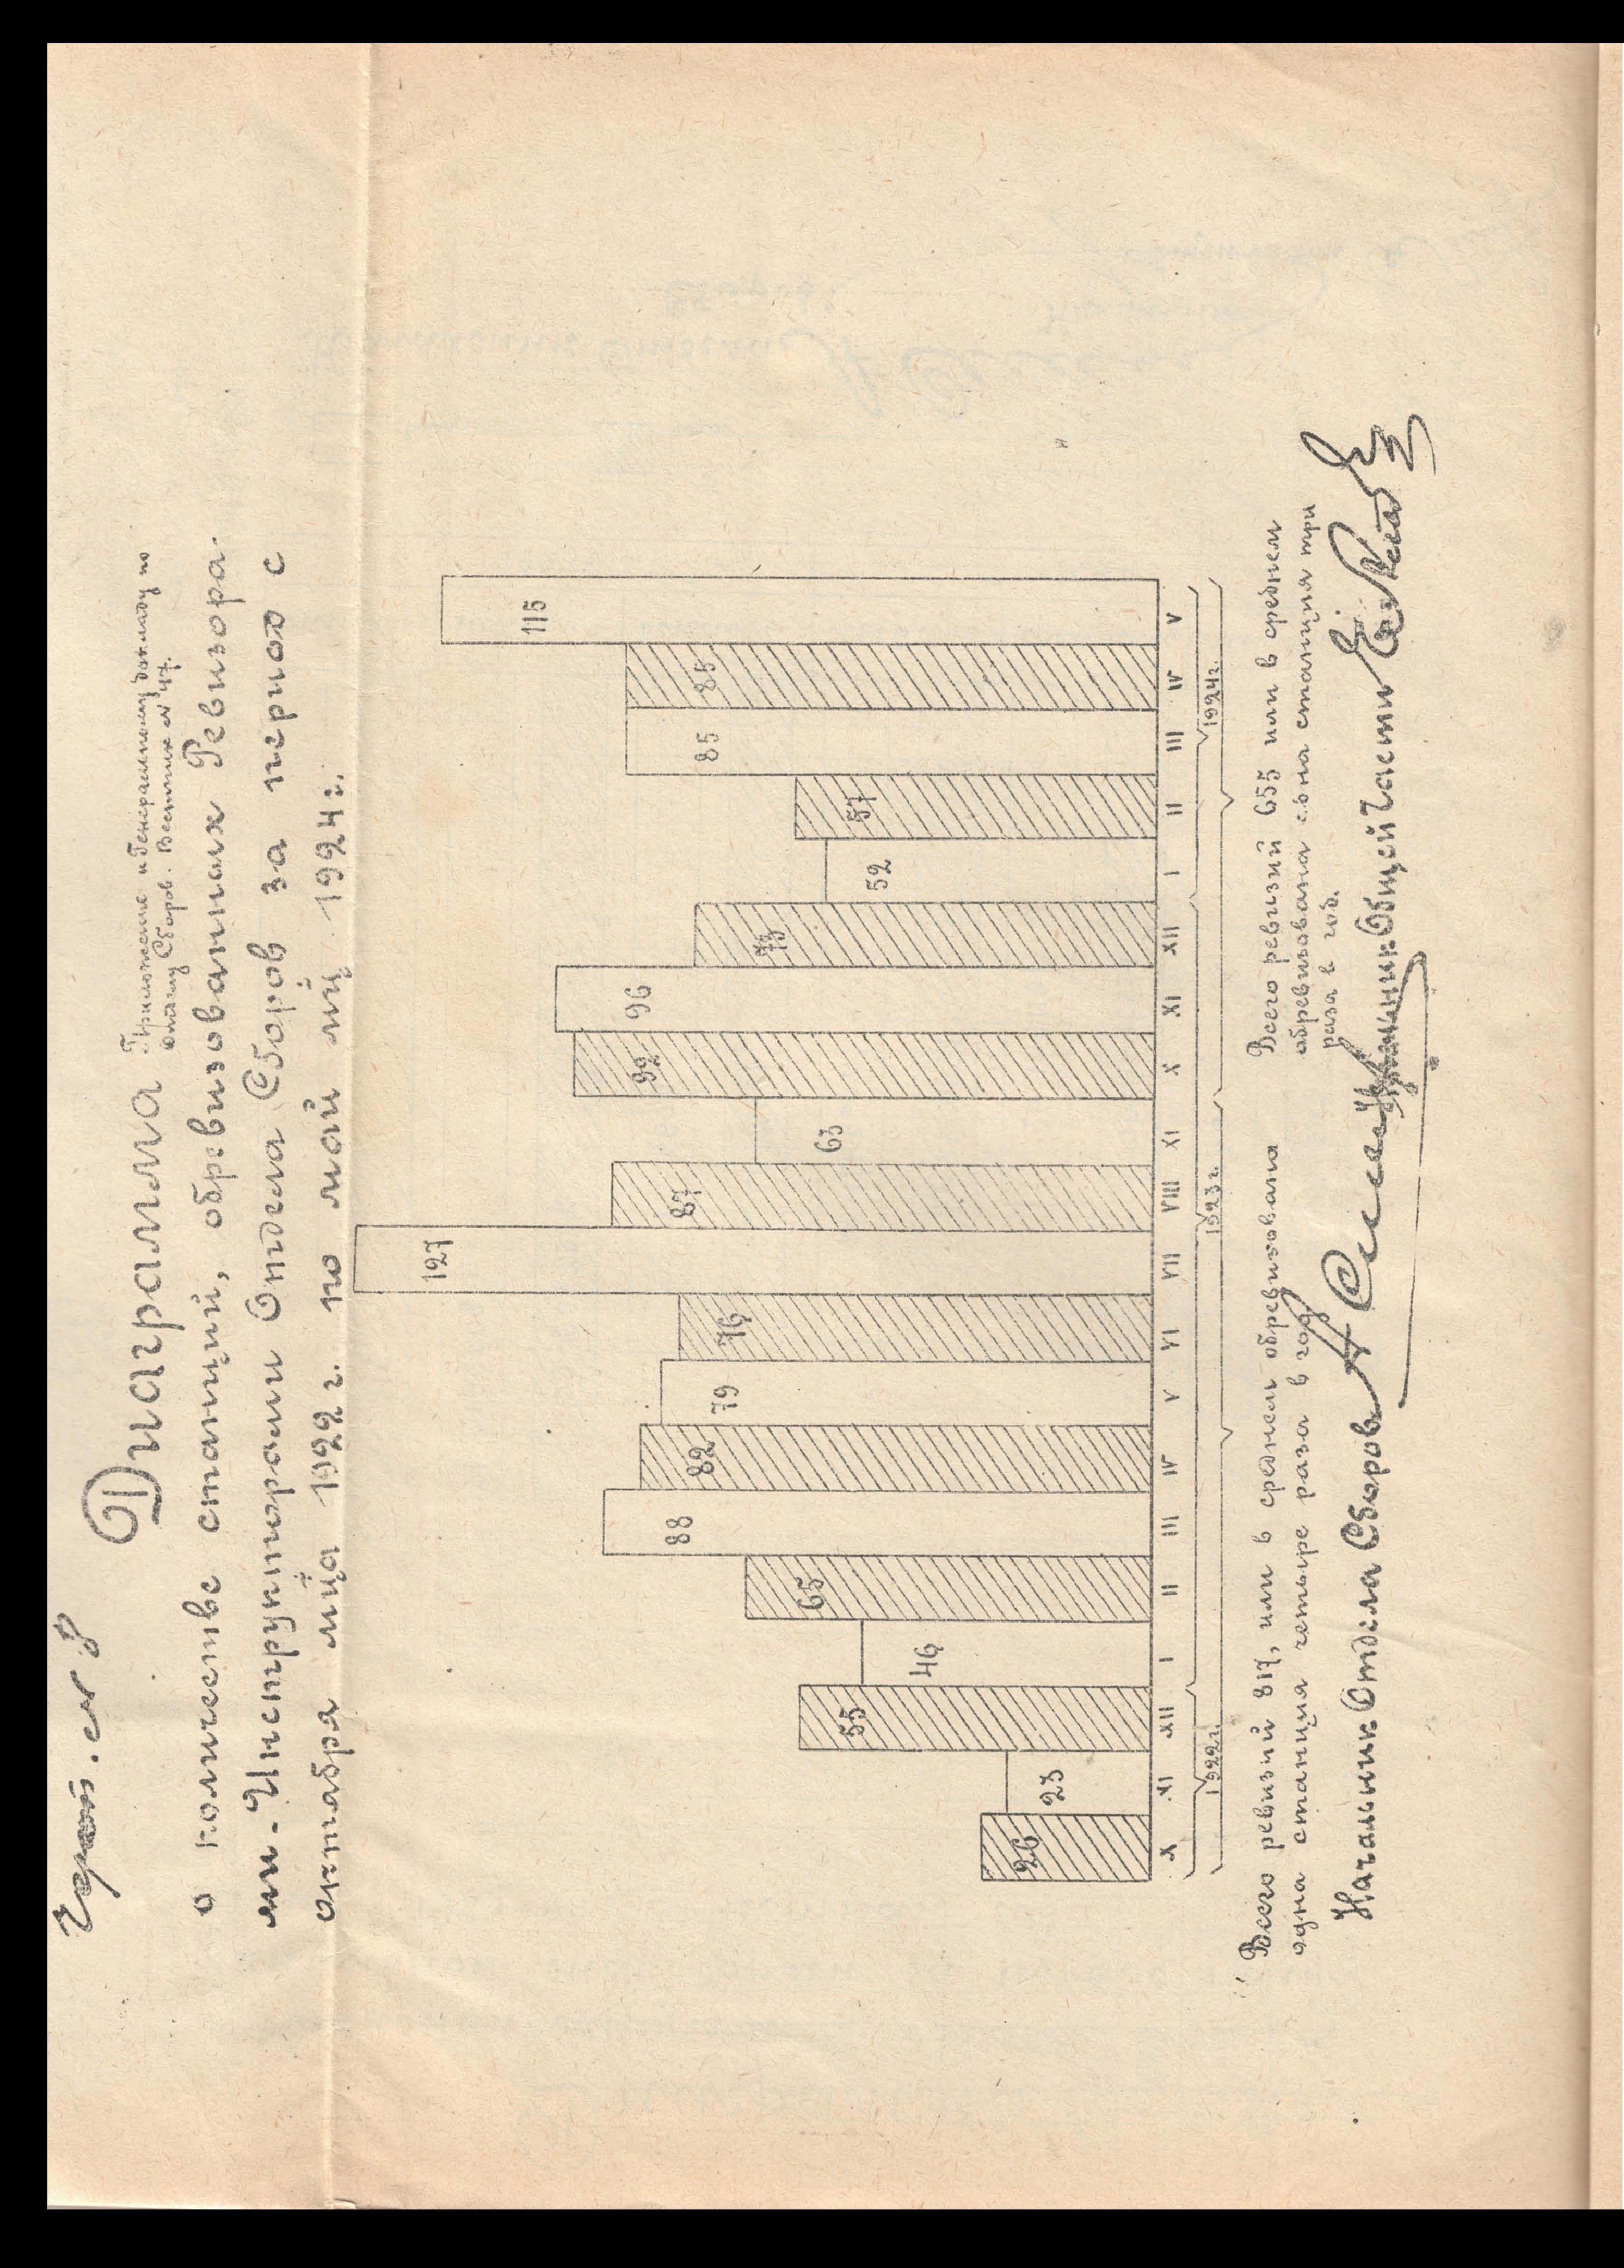 Черт. № 8
Диаграмма
Приложение к Генеральному докладу по
Отделу Сборов. Вестник № 47.
о количестве станций, обревизованных Ревизора-
ми-Инструкторами Отдела Сборов за период с
октября м-ца 1922 г. по май м-ц 1924 г.
26 23 55 46 65 88 82 79 76 127 87 63 92 96 73 52 57 85 85 115
X XI XII I II III IV V VI VII VIII XI X XI XII I II III IV V
1922 г. 1923 г. 1924 г.
Всего ревизий 817, или в среднем обревизована
одна станция четыре раза в год
Всего ревизий 655 или в среднем
обревизована одна станция три
раза в год.
Начальник Отдела Сборов
Начальник Общей Части